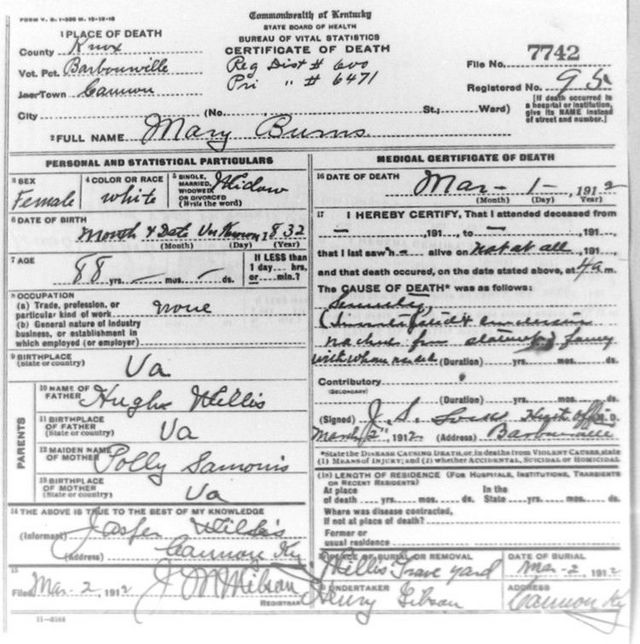 FORM V. S. 1-
Commonwealth of Kentucky
STATE BOARD OF HEALTH
BUREAU OF VITAL STATISTICS
CERTIFICATE OF DEATH
1 PLACE OF DEATH
County Knox
Vot. Pct. Barbourville
Inc. Town Cannon
Reg Dist # 600
Pri " # 6471
File No. 7742
Registered No. 95
[If death occurred in a hospital or institution, give its NAME instead of street and number.]
City (No. St.; Ward)
2 FULL NAME Mary Burns
PERSONAL AND STATISTICAL PARTICULARS
3 SEX
Female
4 COLOR OR RACE
white
5 SINGLE, MARRIED, WIDOWED OR DIVORCED (Write the word)
Widow
6 DATE OF BIRTH
Month & Date Unknown, 1832
(Month) (Day) (Year)
7 AGE
88 yrs. – mos. – ds.
If LESS than 1 day.... hrs. or.... min.?
8 OCCUPATION
(a) Trade, profession, or particular kind of work none
(b) General nature of industry business, or establishment in which employed (or employer)
9 BIRTHPLACE
(State or country) Va
PARENTS
10 NAME OF FATHER Hugh Willis
11 BIRTHPLACE OF FATHER
(State or country) Va
12 MAIDEN NAME OF MOTHER Polly
13 BIRTHPLACE OF MOTHER
(State or country) Va
14 THE ABOVE IS TRUE TO THE BEST OF MY KNOWLEDGE
(Informant) Jasper
(Address) Cannon Ky
15
Filed Mar-2, 1912 J M Wilson
REGISTRAR
MEDICAL CERTIFICATE OF DEATH
16 DATE OF DEATH
Mar – 1 –, 1912
(Month) (Day) (Year)
17 I HEREBY CERTIFY, That I attended deceased from
–, 191..., to –, 191...
that I last saw h– alive on not at all, 191...
and that death occured, on the date stated above, at 4 a m.
The CAUSE OF DEATH* was as follows:
Senility,
from statement of family
with whom (Duration) yrs. mos. ds.
Contributory
(SECONDARY)
(Duration) yrs. mos. ds.
(Signed) J. S. M. D.
March 2, 1912 (Address) Barbourville
*State the DISEASE CAUSING DEATH, or, in deaths from VIOLENT CAUSES, state (1) MEANS OF INJURY; and (2) whether ACCIDENTAL, SUICIDAL OR HOMICIDAL.
18 LENGTH OF RESIDENCE (FOR HOSPITALS, INSTITUTIONS, TRANSIENTS OR RECENT RESIDENTS)
At place of death yrs. mos. ds. In the State yrs. mos. ds.
Where was disease contracted, If not at place of death?
Former or usual residence
19 PLACE OF BURIAL OR REMOVAL
Willis Grave yard
DATE OF BURIAL
Mar-2, 1912
20 UNDERTAKER
Gibson
ADDRESS
Cannon Ky